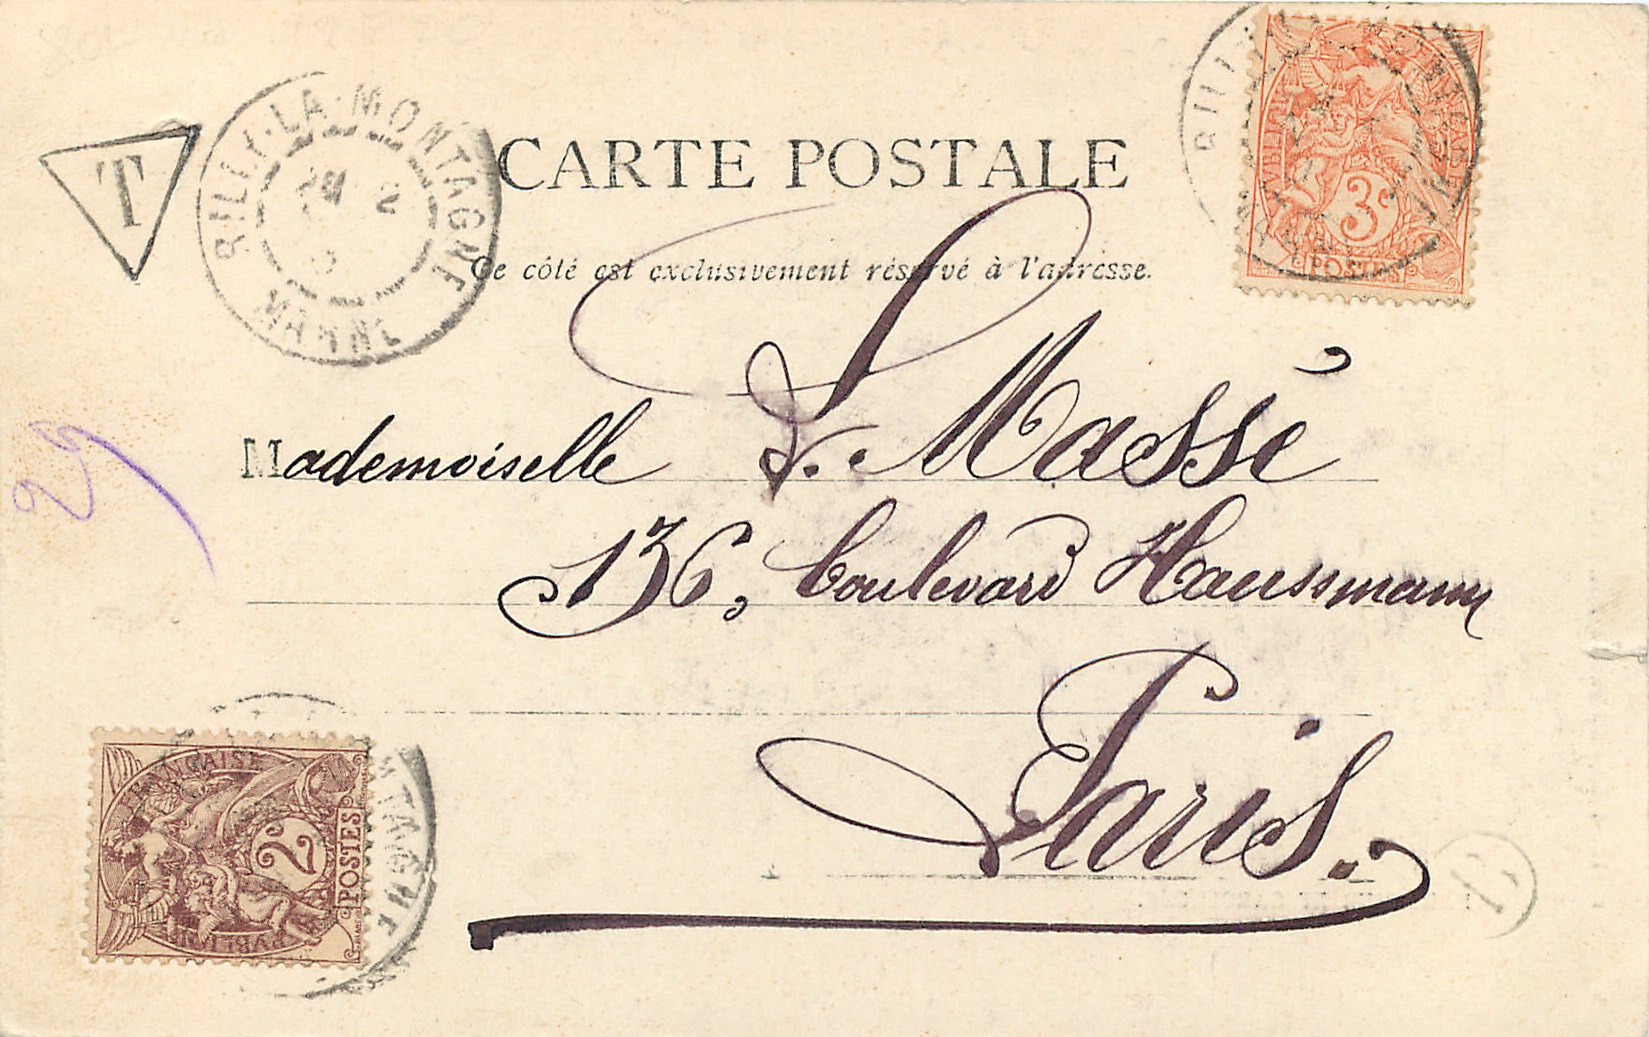 T
RILLY-LA-MONTAGNE
MARNE
CARTE POSTALE
Ce côté est exclusivement réservé à l'adresse.
3c
POSTES
29
Mademoiselle L. Massé
136, boulevard Haussmann
Paris.
FRANÇAISE
2c
POSTES
TAGNE